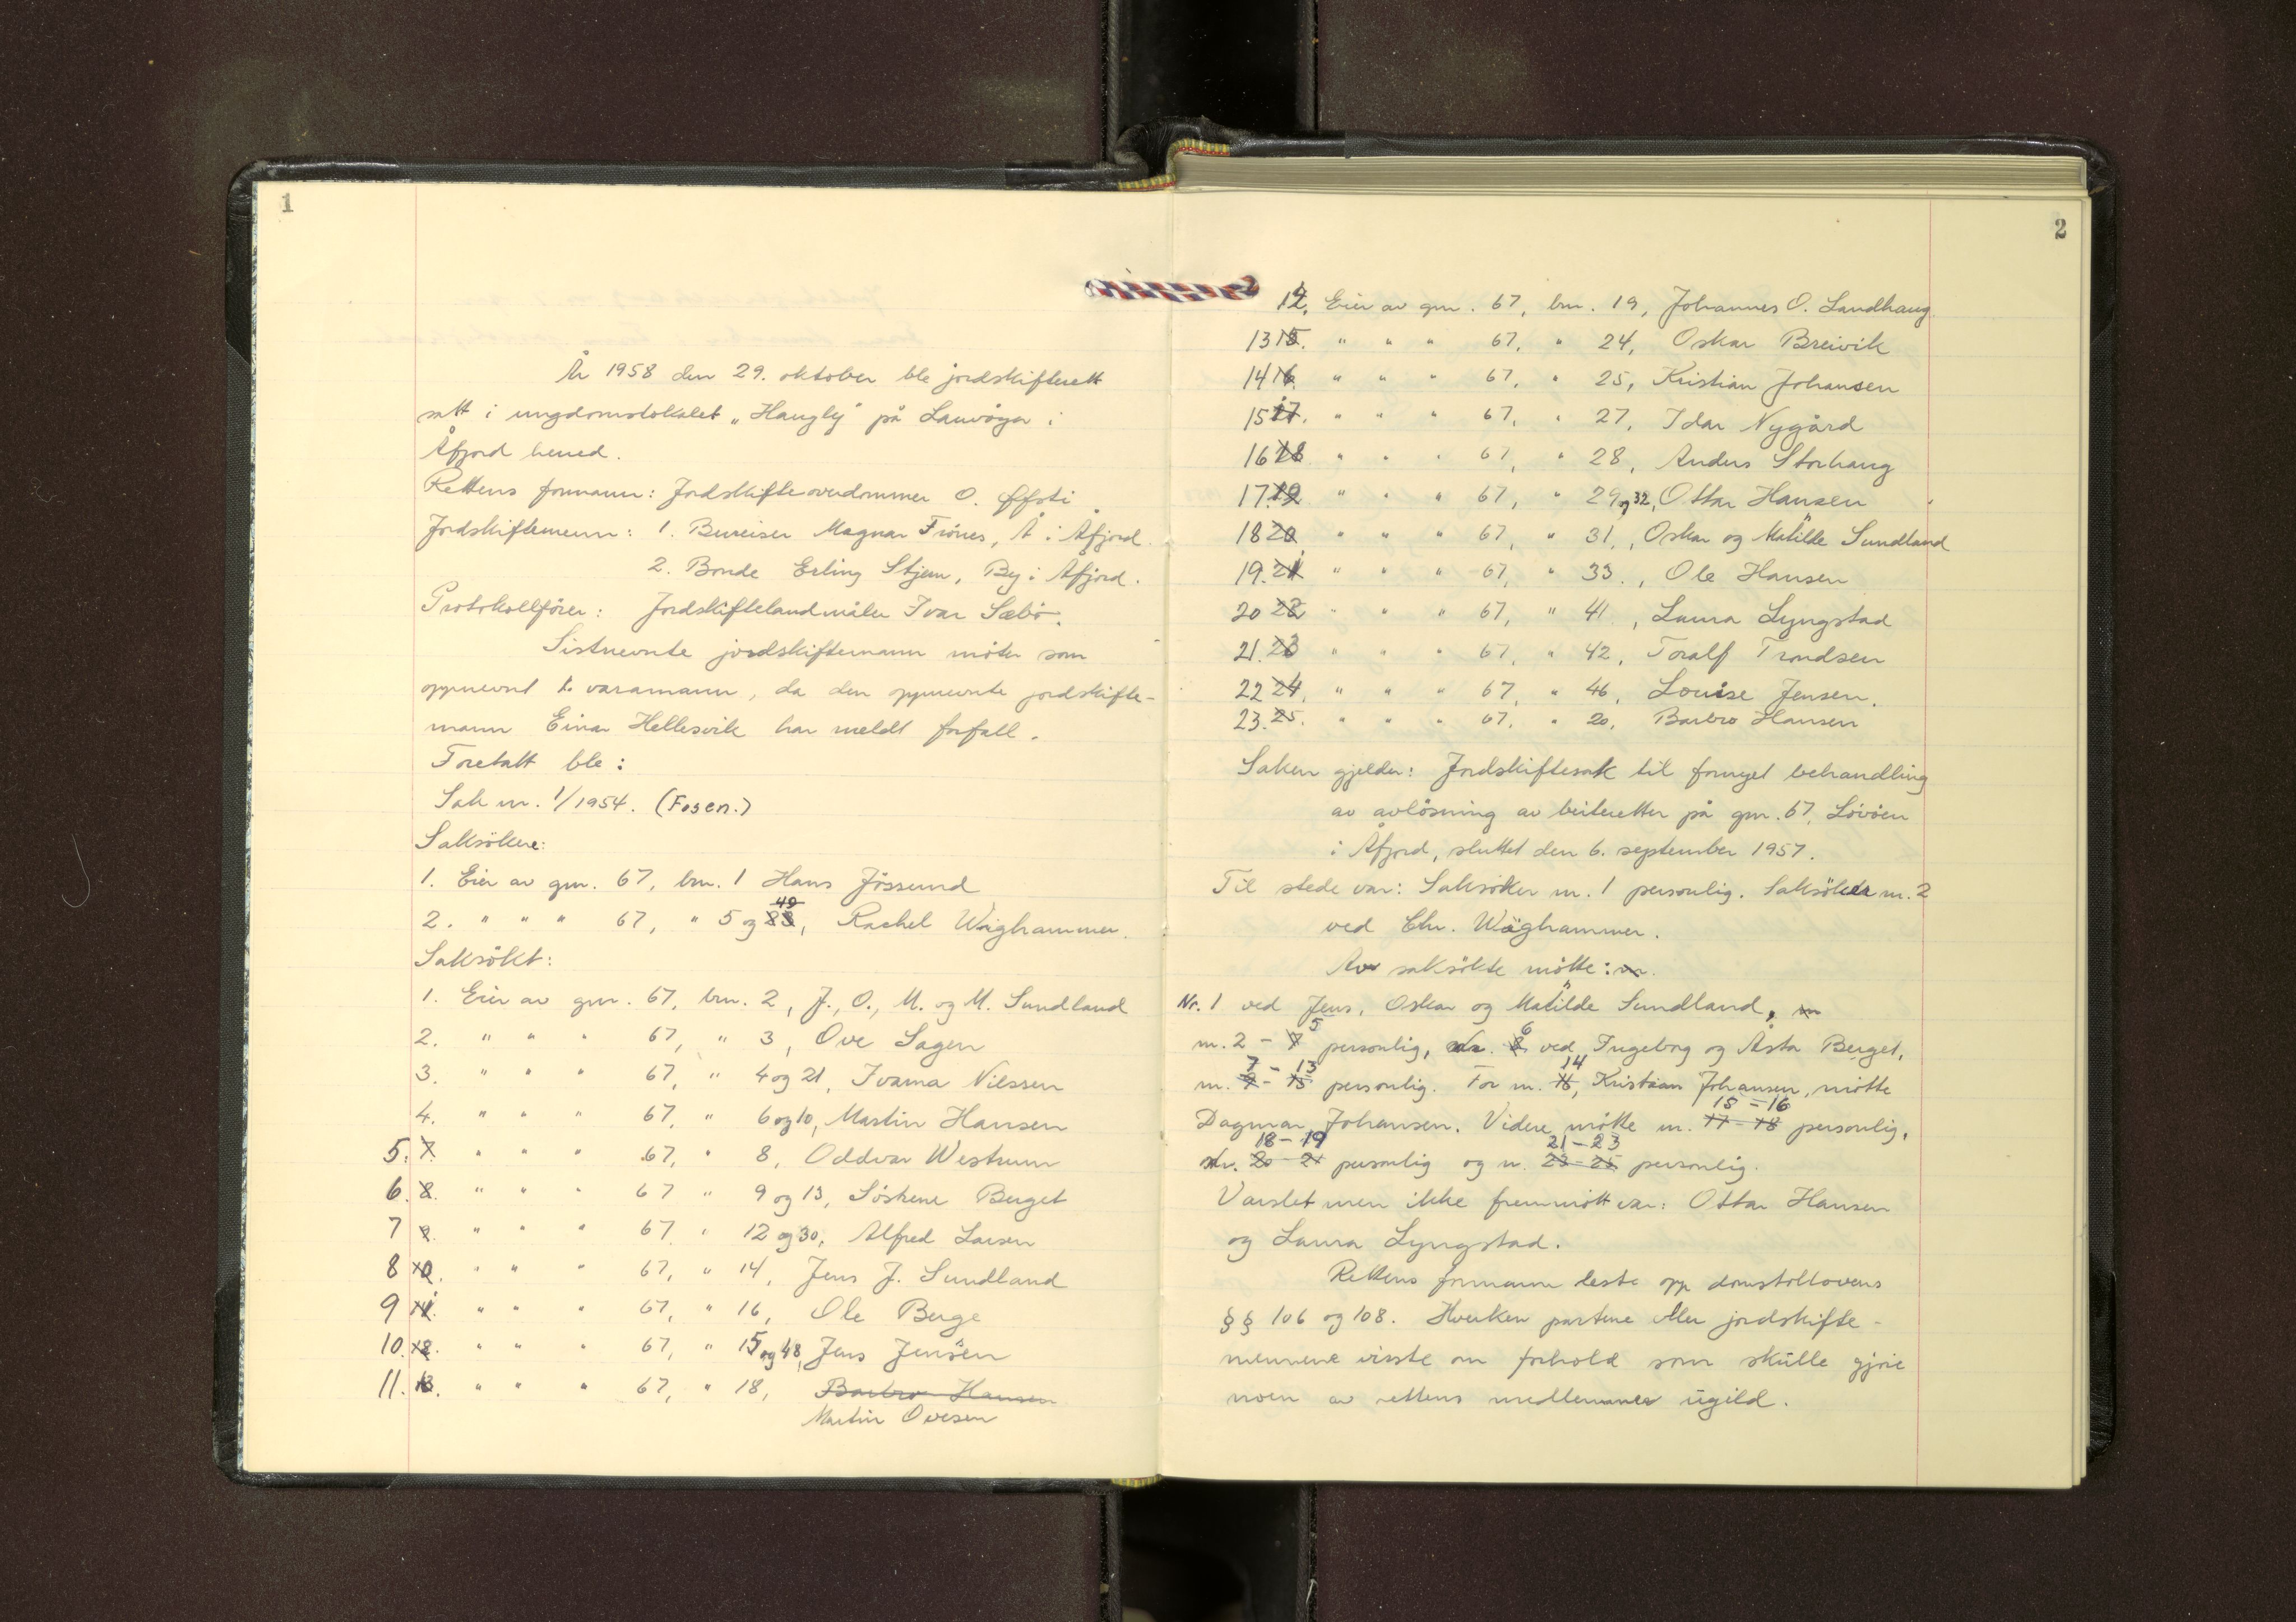 1
År 1958 den 29. oktober ble jordskifterett
satt i ungdomslokalet „Haugly" på Lauvøya i
Åfjord herred.
Rettens formann: Jordskifteoverdommer O. Øfsti
Jordskiftemenn: 1. Bureiser Magnar Frönes, Å i Åfjord.
2. Bonde Erling Stjern, By i Åfjord.
Protokollförer: Jordskiftelandmåler Ivar Sæbö.
Sistnevnte jordskiftemann möter som
oppnevnt varamann, da den oppnevnte jordskifte-
mann Einar Hellesvik har meldt forfall.
Foretatt ble:
Sak nr. 1/1954. (Fosen.)
Saksökere:
1. Eier av gnr. 67, bnr. 1 Hans Jössund
2. " " " 67, " 5 og 49, Rachel Wæghammer.
Saksökt:
1. Eier av gnr. 67, bnr. 2, J., O., M. og M. Sundland
2. " " " 67, " 3, Ove Sagen
3. " " " 67, " 4 og 21, Ivarna Nilssen
4. " " " 67, " 6 og 10, Martin Hansen
5. 7. " " " 67, " 8, Oddvar Westrum
6. 8. " " " 67 " 9 og 13, Söskene Berget
7 9. " " " 67, " 12 og 30, Alfred Larsen
8 10. " " " 67, " 14, Jens J. Sundland
9 11. " " " 67, " 16, Ole Berge
10. 12. " " " 67, " 15 og 48, Jens Jensen
11. 13. " " " 67, " 18, Barbro Hansen
Martin Ovesen
2
12. Eier av gnr. 67, bnr. 19, Johannes O. Sandhaug
13 15. " " " 67, " 24, Oskar Breivik
14 16. " " " 67, " 25, Kristian Johansen
15 17. " " " 67, " 27, Idar Nygård
16 18 " " " 67, " 28, Anders Storhaug
17. 19 " " " 67, " 29 og 32, Ottar Hansen
18 20 " " " 67, " 31, Oskar og Matilde Sundland
19. 21 " " " 67, " 33., Ole Hansen
20 22 " " " 67, " 41, Laura Lyngstad
21. 23 " " " 67, " 42, Toralf Trondsen
22 24. " " " 67, " 46, Louise Jensen.
23. 25. " " " 67. " 20, Barbro Hansen
Saken gjelder: Jordskiftesak til fornyet behandling
av avlösning av beiteretter på gnr. 67, Lövöen
i Åfjord, sluttet den 6. september 1957.
Til stede var: Saksöker nr. 1 personlig. Saksöker nr. 2
ved Chr. Wæghammer.
Av saksökte mötte:
Nr. 1 ved Jens, Oskar og Matilde Sundland,
nr. 2 - 7 5 personlig, nr. 8 6 ved Ingeborg og Åsta Berget,
nr. 9 - 15 7 - 13 personlig. For nr. 16 14, Kristian Johansen, mötte
Dagmar Johansen. Videre mötte nr. 17 - 18 15 - 16 personlig,
nr. 20 - 21 18 - 19 personlig og nr. 23 - 25 21 - 23 personlig.
Varslet men ikke fremmött var: Ottar Hansen
og Laura Lyngstad.
Rettens formann leste opp domstollovens
§§ 106 og 108. Hverken partene eller jordskifte-
mennene visste om forhold som skulle gjöre
noen av rettens medlemmer ugild.